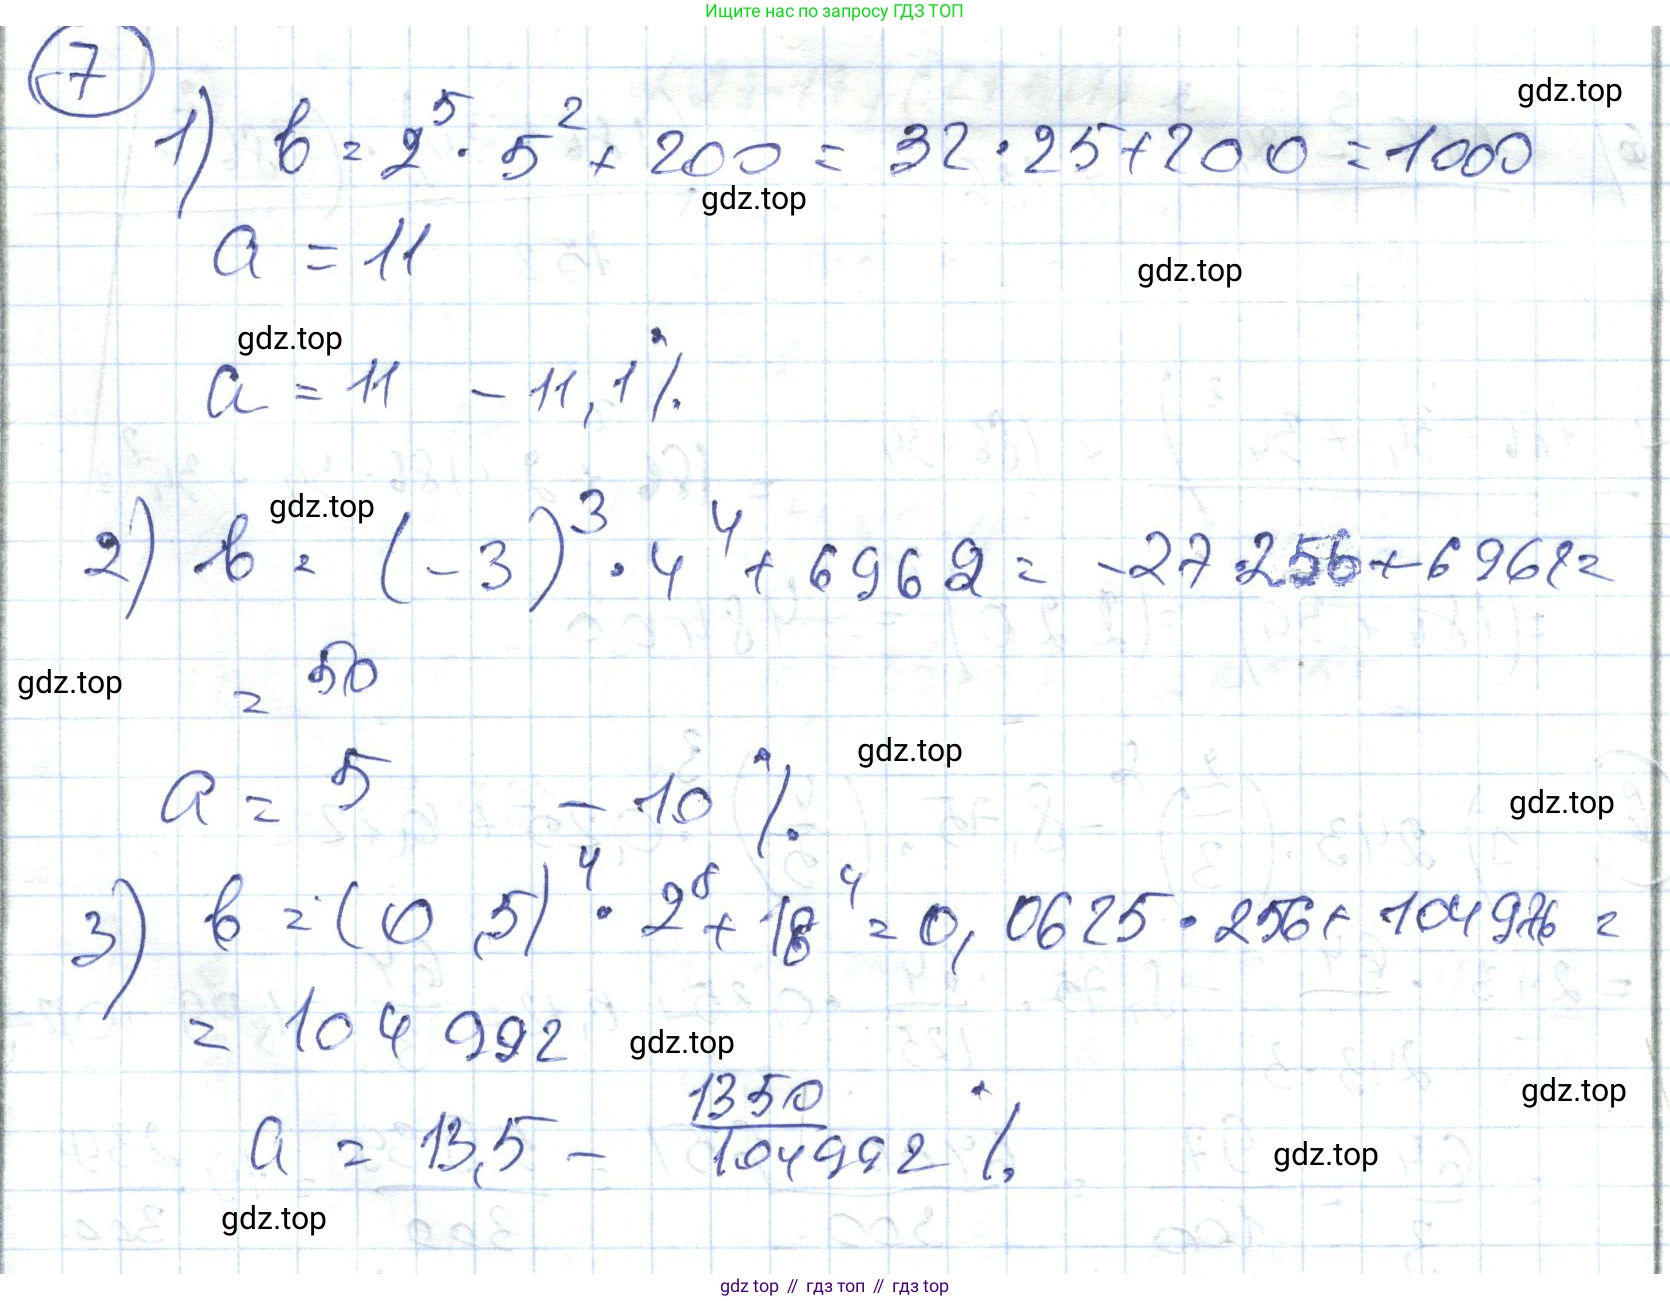 Ищите нас по запросу ГДЗ ТОП
7
gdz.top
1) b = 2^5 · 5^2 + 200 = 32 · 25 + 200 = 1000
gdz.top
a = 11
gdz.top
gdz.top
a = 11 – 11,1 %
gdz.top
2) b = (-3)^3 · 4^4 + 6962 = -27 · 256 + 6962 =
gdz.top
= 50
gdz.top
a = 5 – 10 %
gdz.top
3) b = (0,5)^4 · 2^8 + 18^4 = 0,0625 · 256 + 104976 =
= 104 992
gdz.top
gdz.top
a = 13,5 – 1350/104992 %
gdz.top
gdz.top
gdz top // гдз топ // гдз top